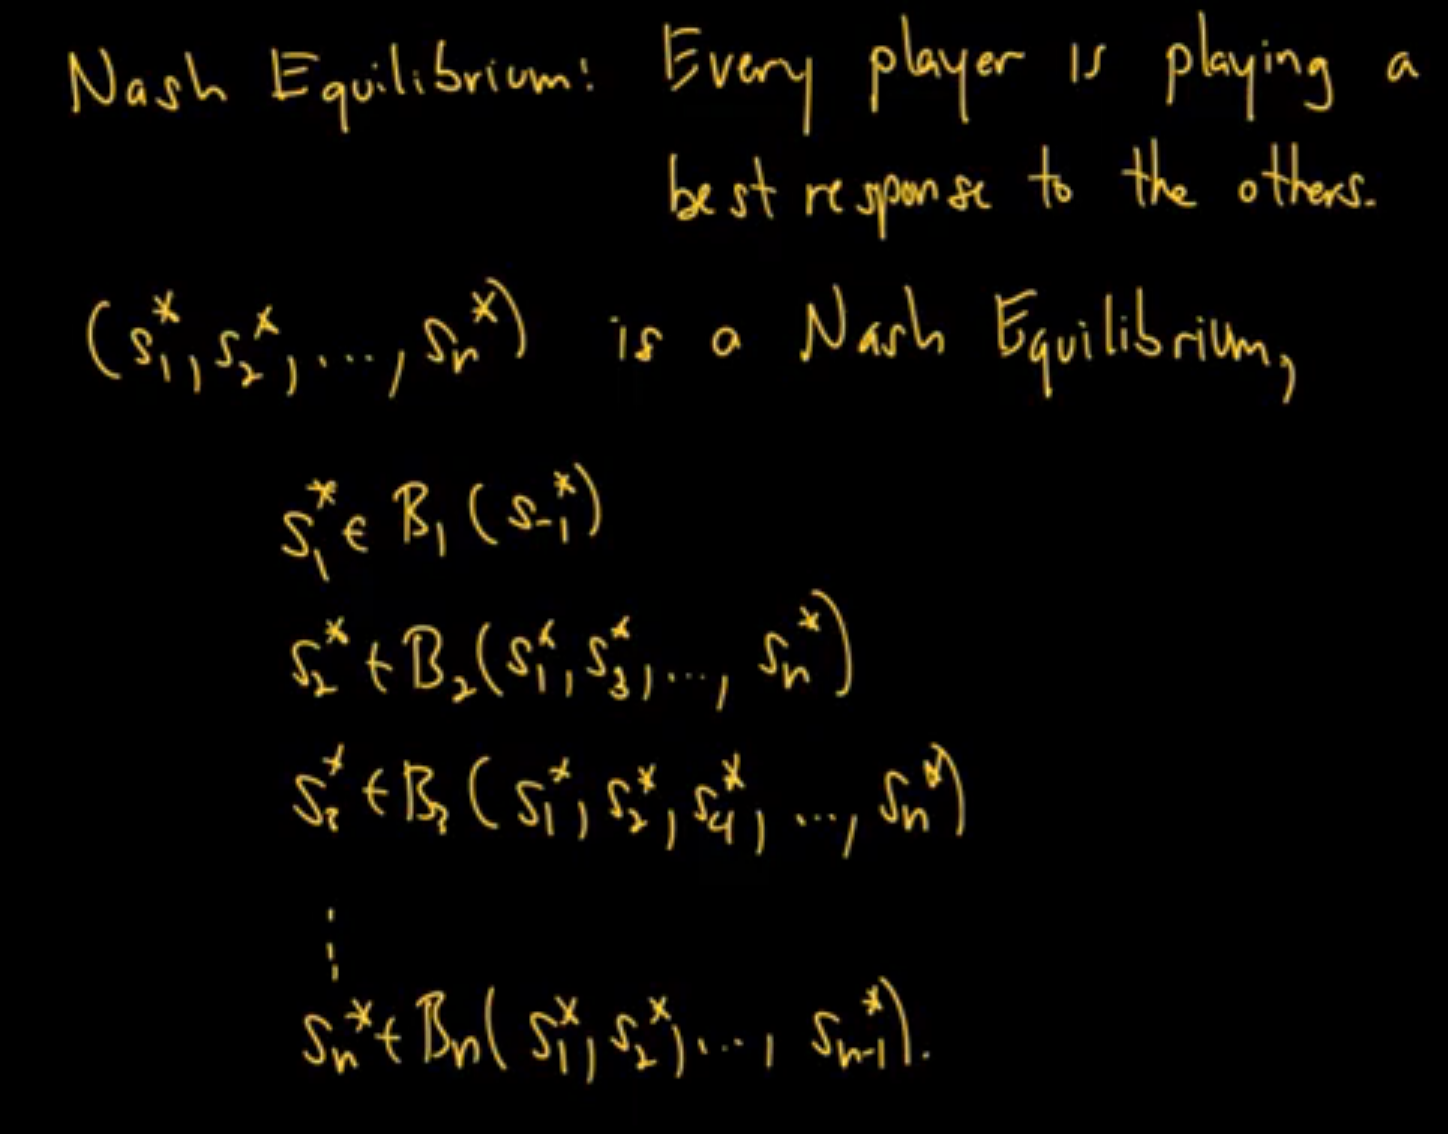 Nash Equilibrium: Every player is playing a
best response to the others.
(s₁*, s₂*, ..., sₙ*) is a Nash Equilibrium,
s₁* ∈ B₁ (s₋₁*)
s₂* ∈ B₂(s₁*, s₃*, ..., sₙ*)
s₃* ∈ B₃ (s₁*, s₂*, s₄*, ..., sₙ*)
⋮
sₙ* ∈ Bₙ(s₁*, s₂*, ..., sₙ₋₁*).